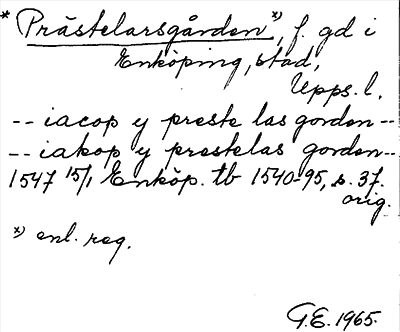 * Prästelarsgården *), f. gd i
Enköping, stad,
Upps. l.
-- iacop y preste las gorden --
-- iakop y prestelas gorden --
1547 15/1 Enköp. tb 1540-95, s. 37.
orig.
*) enl. reg.
G.E. 1965.